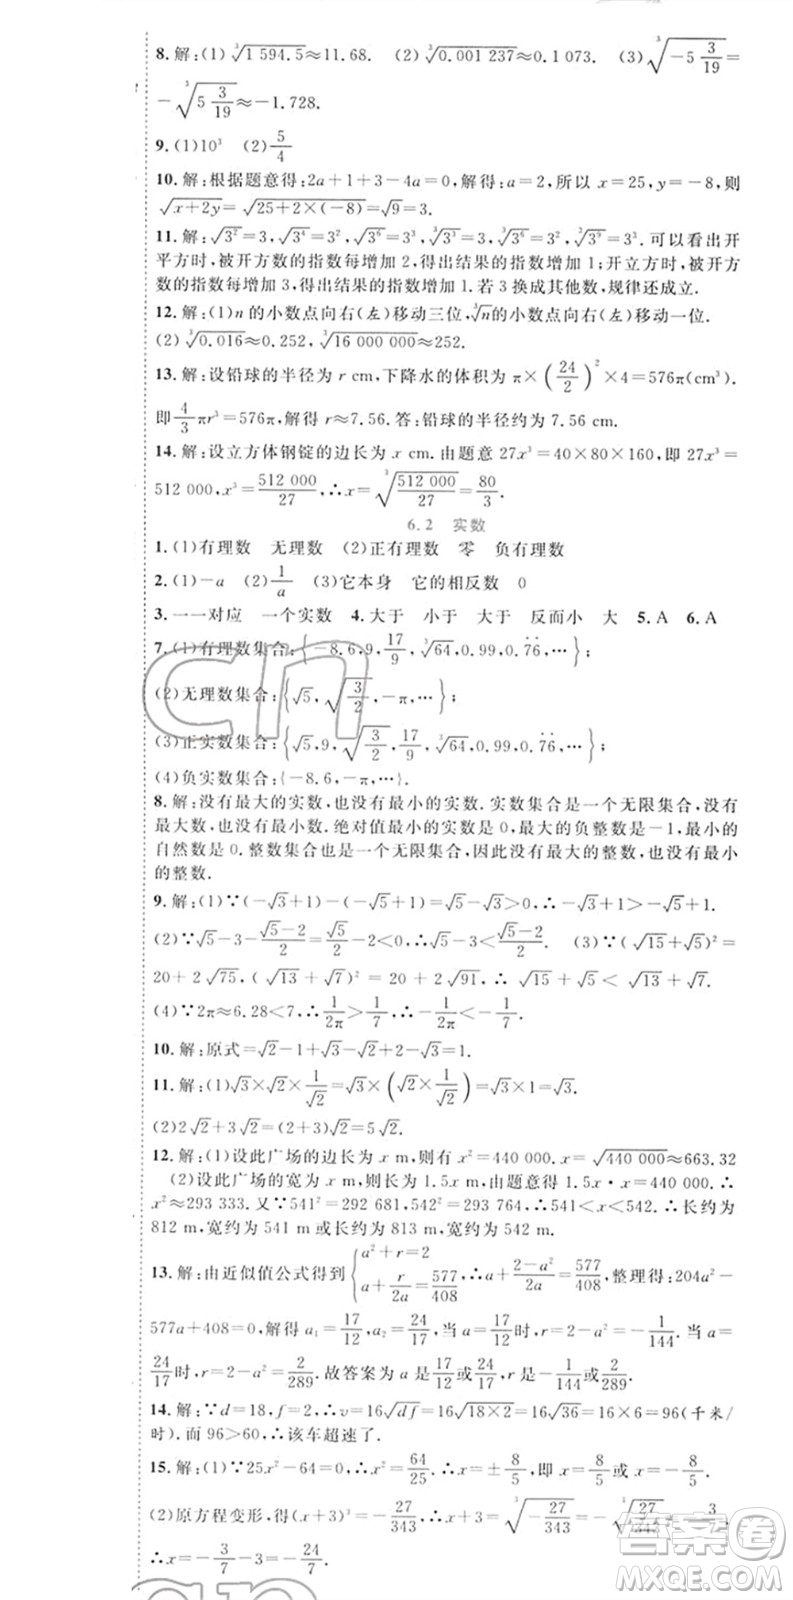 8.解:(1)∛1 594.5≈11.68. (2)∛0.001 237≈0.1 073. (3)∛(-5 3/19)=
-∛(5 3/19)≈-1.728.
9.(1)10³ (2)5/4
10.解:根据题意得:2a+1+3-4a=0,解得:a=2,所以 x=25,y=-8,则
√(x+2y)=√(25+2×(-8))=√9=3.
11.解:√3²=3,√3⁴=3²,√3⁶=3³,∛3³=3,∛3⁶=3²,∛3⁹=3³.可以看出开
平方时,被开方数的指数每增加 2,得出结果的指数增加 1;开立方时,被开
方数的指数增加 3,得出结果的指数增加 1.若 3 换成其他数,规律还成立.
12.解:(1)n 的小数点向右(左)移动三位,∛n的小数点向右(左)移动一位.
(2)∛0.016≈0.252,∛16 000 000≈252.
13.解:设铅球的半径为 r cm,下降水的体积为 π×(24/2)²×4=576π(cm³).
即 4/3πr³=576π,解得 r≈7.56.答:铅球的半径约为 7.56 cm.
14.解:设立方体钢锭的边长为 x cm.由题意 27x³=40×80×160,即 27x³=
512 000,x³=512 000/27,∴x=∛(512 000/27)=80/3.
6.2 实数
1.(1)有理数 无理数 (2)正有理数 零 负有理数
2.(1)-a (2)1/a (3)它本身 它的相反数 0
3.一一对应 一个实数 4.大于 小于 大于 反而小 大 5.A 6.A
7.(1)有理数集合:{-8.6,9,17/9,∛64,0.99,0.7̇6̇,…};
(2)无理数集合:{√5,√(3/2),-π,…};
(3)正实数集合:{√5,9,√(3/2),17/9,∛64,0.99,0.7̇6̇,…};
(4)负实数集合:{-8.6,-π,…}.
8.解:没有最大的实数,也没有最小的实数.实数集合是一个无限集合,没有
最大数,也没有最小数.绝对值最小的实数是 0,最大的负整数是-1,最小的
自然数是 0.整数集合也是一个无限集合,因此没有最大的整数,也没有最小
的整数.
9.解:(1)∵(-√3+1)-(-√5+1)=√5-√3>0,∴-√3+1>-√5+1.
(2)∵√5-3-(√5-2)/2=√5/2-2<0,∴√5-3<(√5-2)/2. (3)∵(√15+√5)²=
20+2√75,(√13+√7)²=20+2√91,∴√15+√5<√13+√7.
(4)∵2π≈6.28<7,∴1/2π>1/7,∴-1/2π<-1/7.
10.解:原式=√2-1+√3-√2+2-√3=1.
11.解:(1)√3×√2×1/√2=√3×(√2×1/√2)=√3×1=√3.
(2)2√2+3√2=(2+3)√2=5√2.
12.解:(1)设此广场的边长为 x m,则有 x²=440 000.x=√440 000≈663.32
(2)设此广场的宽为 x m,则长为 1.5x m,由题意得 1.5x·x=440 000,∴
x²≈293 333.又∵541²=292 681,542²=293 764,∴541<x<542.∴长约为
812 m,宽约为 541 m或长约为 813 m,宽约为 542 m.
13.解:由近似值公式得到{a²+r=2 a+r/2a=577/408,∴a+(2-a²)/2a=577/408,整理得:204a²-
577a+408=0,解得 a₁=17/12,a₂=24/17,当 a=17/12时,r=2-a²=-1/144.当 a=
24/17时,r=2-a²=2/289.故答案为 a 是17/12或24/17,r=-1/144或2/289.
14.解:∵d=18,f=2,∴v=16√df=16√(18×2)=16√36=16×6=96(千米/
时).而 96>60,∴该车超速了.
15.解:(1)∵25x²-64=0,∴x²=64/25.∴x=±8/5,即 x=8/5或 x=-8/5.
(2)原方程变形,得(x+3)³=-27/343,∴x+3=∛(-27/343)=-∛(27/343)=-3/7,
∴x=-3/7-3=-24/7.
答案卷
MXQE.COM